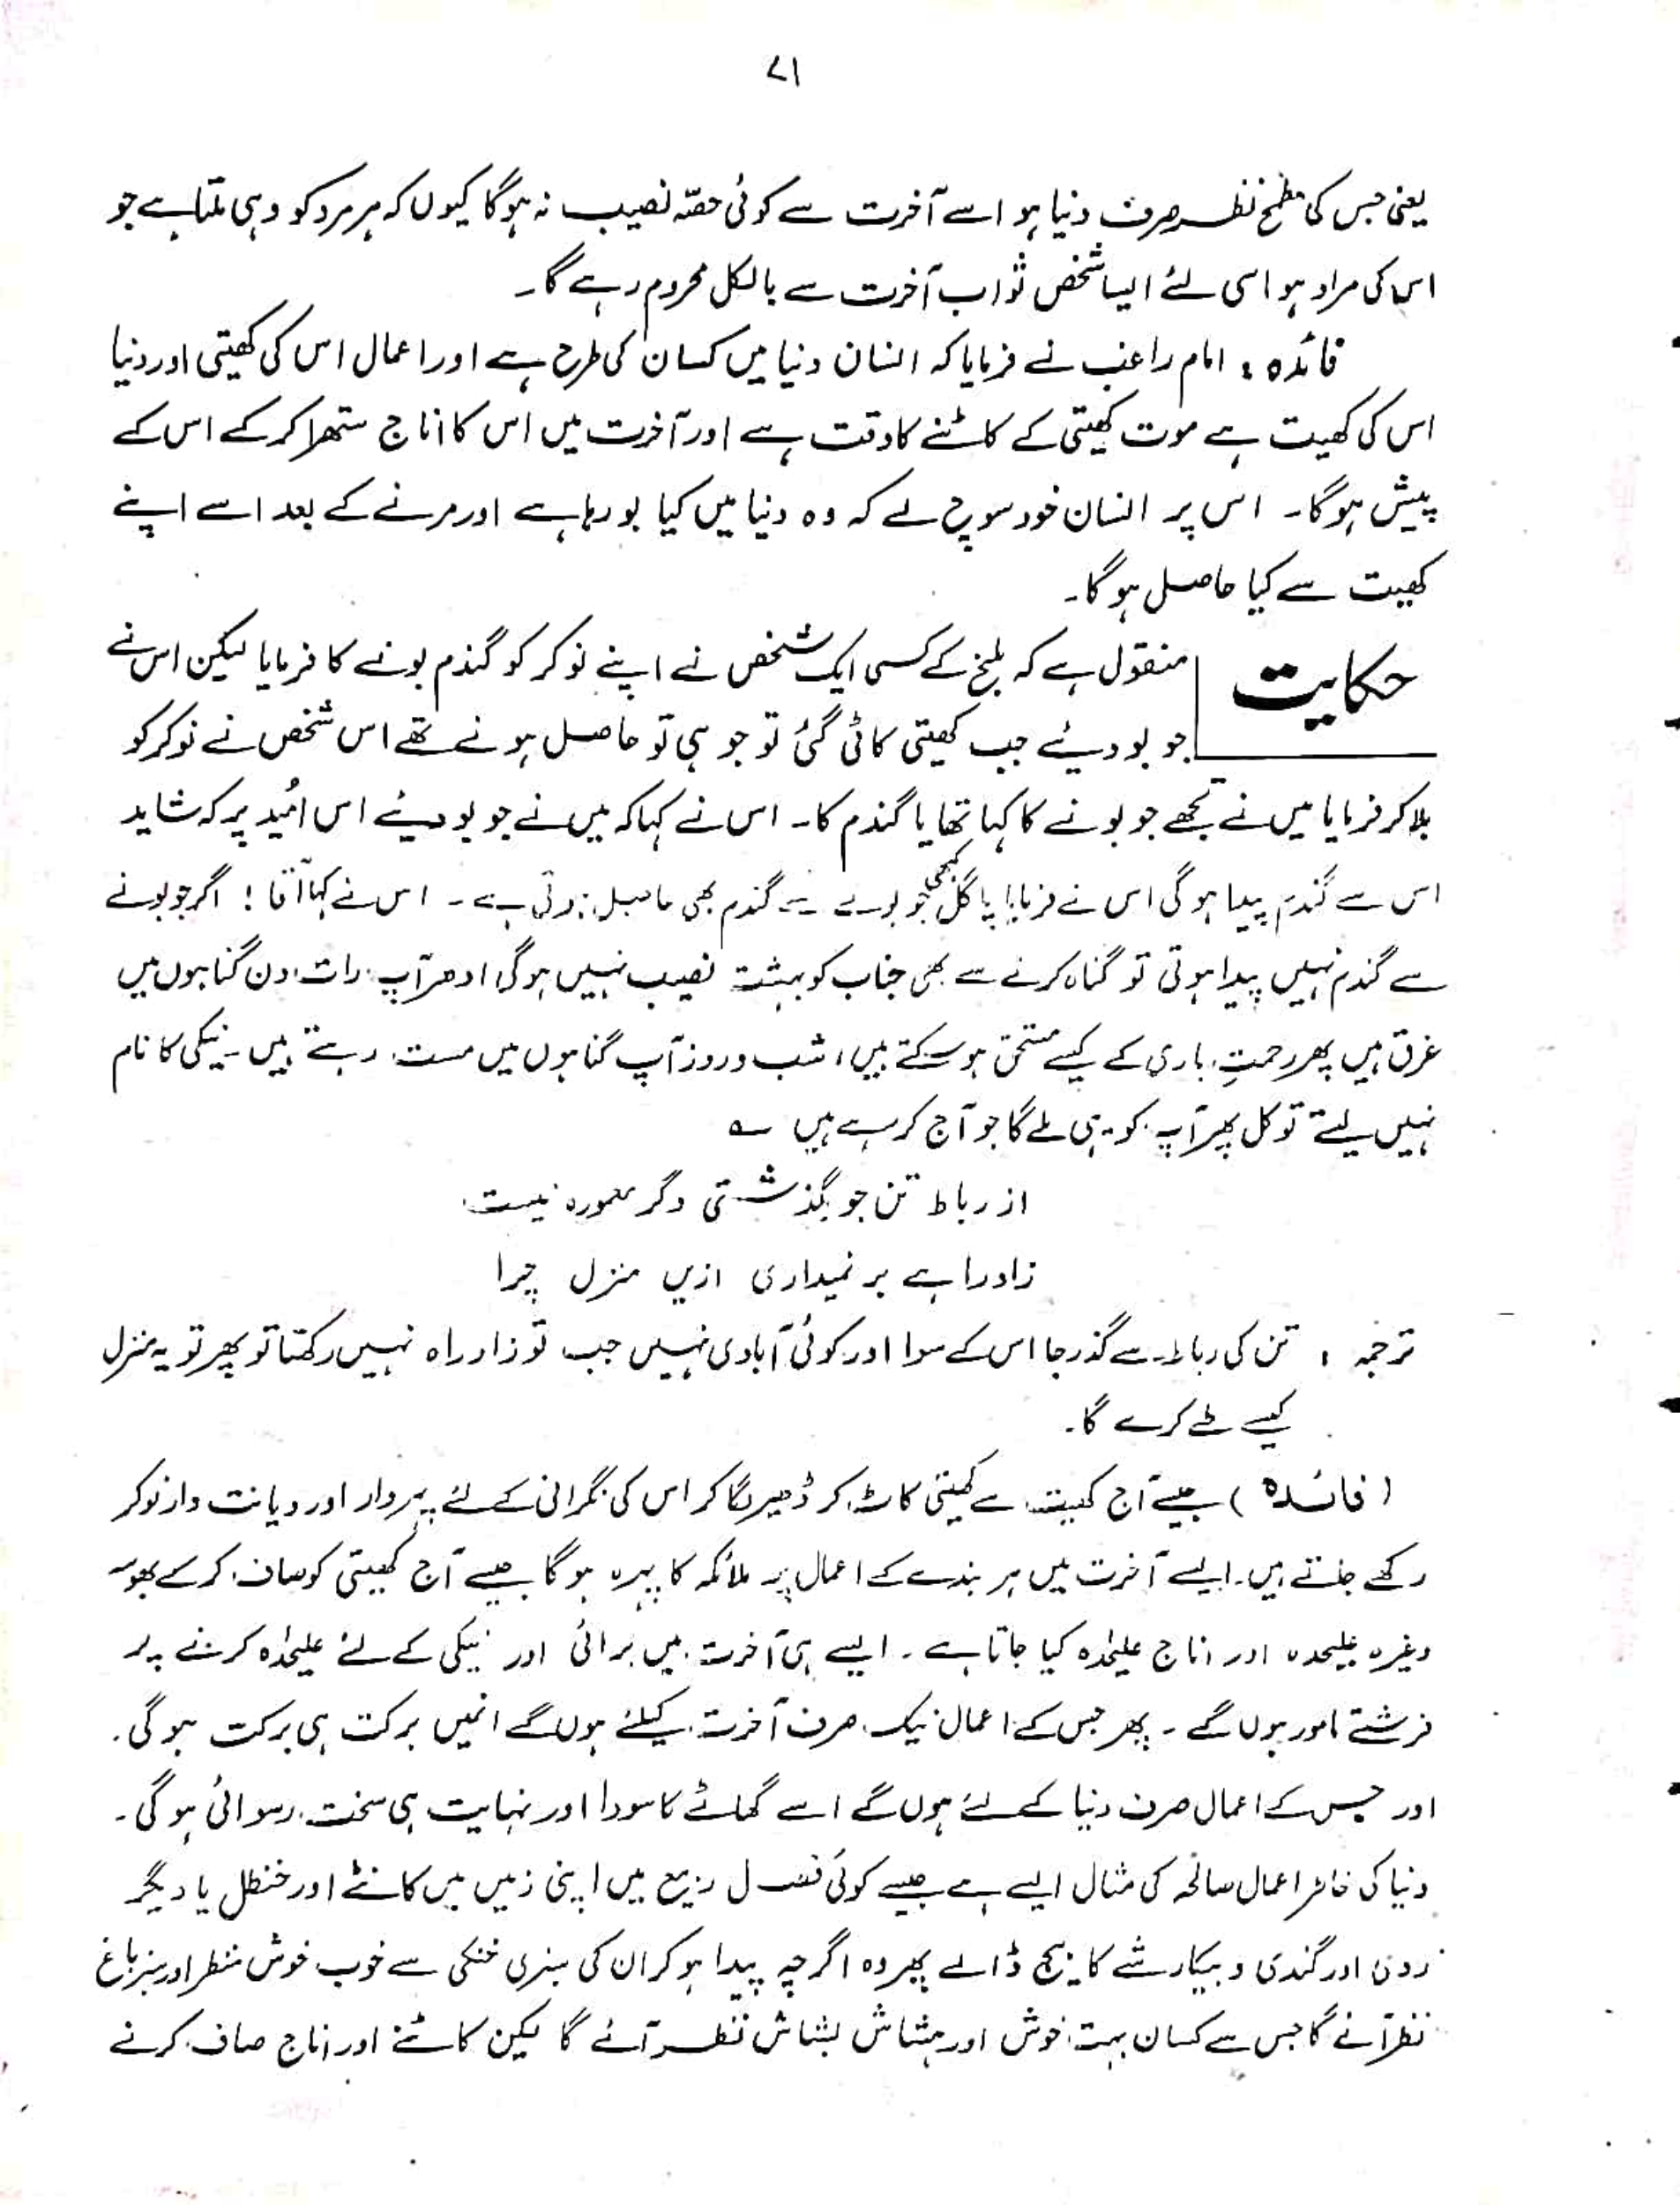 ۷۱
یعنی جس کی مطمح نظر صرف دنیا ہو اسے آخرت سے کوئی حصّہ نصیب نہ ہوگا کیوں کہ ہر مرد کو وہی ملتا ہے جو
اس کی مراد ہو اسی لئے ایسا شخص ثواب آخرت سے بالکل محروم رہے گا۔
فائدہ : امام راغب نے فرمایا کہ انسان دنیا میں کسان کی طرح ہے اور اعمال اس کی کھیتی اور دنیا
اس کی کھیت ہے موت کھیتی کے کاٹنے کا وقت ہے اور آخرت میں اس کا اناج ستھرا کر کے اس کے
پیش ہوگا۔ اس پر انسان خود سوچ لے کہ وہ دنیا میں کیا بو رہا ہے اور مرنے کے بعد اسے اپنے
کھیت سے کیا حاصل ہو گا۔
حکایت
منقول ہے کہ بلخ کے کسی ایک شخص نے اپنے نوکر کو گندم بونے کا فرمایا لیکن اس نے
جو بو دیئے جب کھیتی کاٹی گئی تو جو ہی تو حاصل ہونے تھے اس شخص نے نوکر کو
بلا کر فرمایا میں نے تجھے جو بونے کا کہا تھا یا گندم کا۔ اس نے کہا کہ میں نے جو بو دیئے اس اُمید پر کہ شاید
اس سے گندم پیدا ہو گی اس نے فرمایا پاگل کبھی جو بونے سے گندم بھی حاصل ہوتی ہے۔ اس نے کہا آقا! اگر جو بونے
سے گندم نہیں پیدا ہوتی تو گناہ کرنے سے بھی جناب کو بہشت نصیب نہیں ہوگی ادھر آپ رات دن گناہوں میں
غرق ہیں پھر رحمتِ باری کے کیسے مستحق ہو سکتے ہیں، شب و روز آپ گناہوں میں مست رہتے ہیں۔ نیکی کا نام
نہیں لیتے تو کل پھر آپ کو وہی ملے گا جو آج کر رہے ہیں ؎
از رباط تن جو بگذشتی دگر معمورہ نیست
زاد راہے بر نمیداری ازیں منزل چرا
ترجمہ : تن کی رباط سے گذر جا اس کے سوا اور کوئی آبادی نہیں جب تو زاد راہ نہیں رکھتا تو پھر تو یہ منزل
کیسے طے کرے گا۔
(فائدہ) جیسے آج کھیت سے کھیتی کاٹ کر ڈھیر لگا کر اس کی نگرانی کے لئے پہردار اور دیانت دار نوکر
رکھے جاتے ہیں۔ ایسے آخرت میں ہر بندے کے اعمال پر ملائکہ کا پہرہ ہو گا جیسے آج کھیتی کو صاف کر کے بھوسہ
وغیرہ علیحدہ اور اناج علیحدہ کیا جاتا ہے۔ ایسے ہی آخرت میں برائی اور نیکی کے لئے علیحدہ کرنے پر
فرشتے مامور ہوں گے۔ پھر جس کے اعمال نیک صرف آخرت کیلئے ہوں گے انہیں برکت ہی برکت ہو گی۔
اور جس کے اعمال صرف دنیا کے لئے ہوں گے اسے گھاٹے کا سودا اور نہایت ہی سخت رسوائی ہو گی۔
دنیا کی خاطر اعمال صالحہ کی مثال ایسے ہے جیسے کوئی فصل ربیع میں اپنی زمیں میں کانٹے اور حنظل یا دیگر
ردی اور گندی و بیکار شے کا بیج ڈالے پھر وہ اگرچہ پیدا ہو کر ان کی سبزی خنکی سے خوب خوش منظر اور سبز باغ
نظر آئے گا جس سے کسان بہت خوش اور ہشاش بشاش نظر آئے گا لیکن کاٹنے اور اناج صاف کرنے